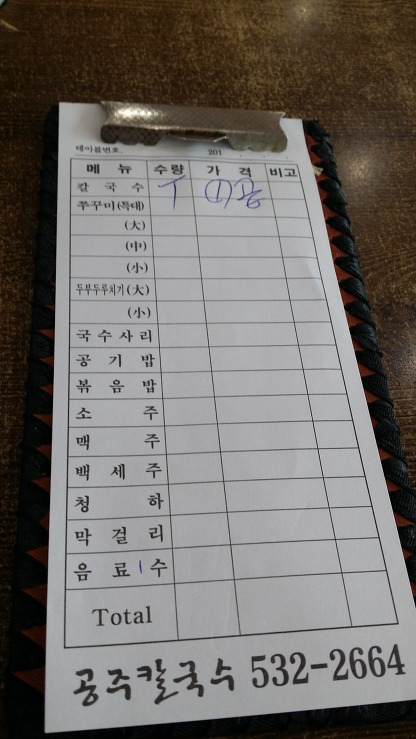 테이블번호. 201 . . .
메 뉴 수량 가 격 비고
칼 국 수 T ① 곱
쭈꾸미(특대)
(大)
(中)
(小)
두부두루치기(大)
(小)
국 수 사 리
공 기 밥
볶 음 밥
소 주
맥 주
백 세 주
청 하
막 걸 리
음 료 수
Total
공주칼국수 532-2664